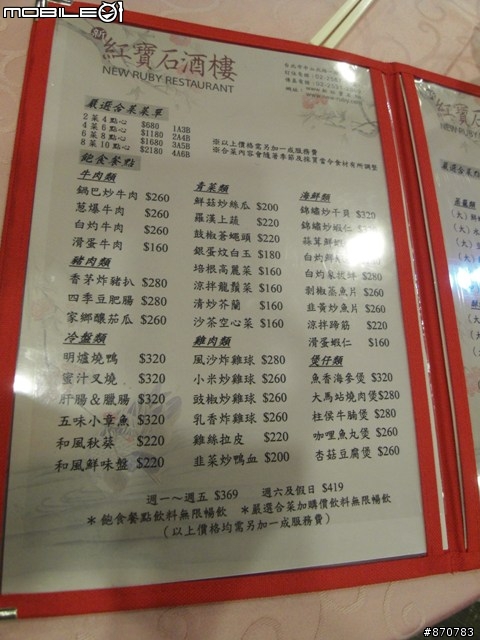 MOBILE01
新
紅寶石酒樓
NEW RUBY RESTAURANT
嚴選合菜菜單
2菜4點心 $680 1A3B
4菜6點心 $1180 2A4B
6菜8點心 $1680 3A5B
8菜10點心 $2180 4A6B
※以上價格均需另加一成服務費
※合菜內容會隨著季節及採買當令食材有所調整
飽食餐點
牛肉類
鍋巴炒牛肉 $260
蔥爆牛肉 $260
白灼牛肉 $260
滑蛋牛肉 $160
豬肉類
香茅炸豬扒 $280
四季豆肥腸 $280
家鄉釀茄瓜 $260
冷盤類
明爐燒鴨 $320
蜜汁叉燒 $320
肝腸&臘腸 $320
五味小章魚 $320
和風秋葵 $220
和風鮮味盤 $220
青菜類
鮮菇炒絲瓜 $200
羅漢上蔬 $220
豉椒蒼蠅頭 $220
銀蛋炆白玉 $180
培根高麗菜 $160
涼拌龍鬚菜 $160
清炒芥蘭 $160
沙茶空心菜 $160
雞肉類
風沙炸雞球 $280
小米炒雞球 $260
豉椒炒雞球 $260
乳香炸雞球 $260
雞絲拉皮 $220
韭菜炒鴨血 $200
海鮮類
錦繡炒干貝 $320
錦繡炒蝦仁
剁椒蒸魚片 $260
韭黃炒魚片 $260
涼拌蹄筋 $220
滑蛋蝦仁 $160
煲仔類
魚香海參煲 $320
大馬站燒肉煲$280
柱侯牛腩煲 $280
咖哩魚丸煲 $260
杏菇豆腐煲 $260
週一~週五 $369 週六及假日 $419
*飽食餐點飲料無限暢飲 *嚴選合菜加購價飲料無限暢飲
(以上價格均需另加一成服務費)
紅寶石
嚴選合菜
#870783